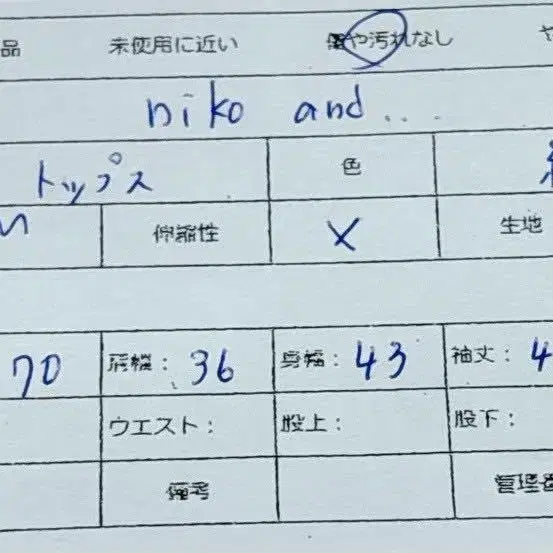 品 未使用に近い 傷や汚れなし や
niko and...
トップス 色
い 伸縮性 × 生地
70 肩幅: 36 身幅: 43 袖丈: 4
ウエスト: 股上: 股下:
備考 管理番